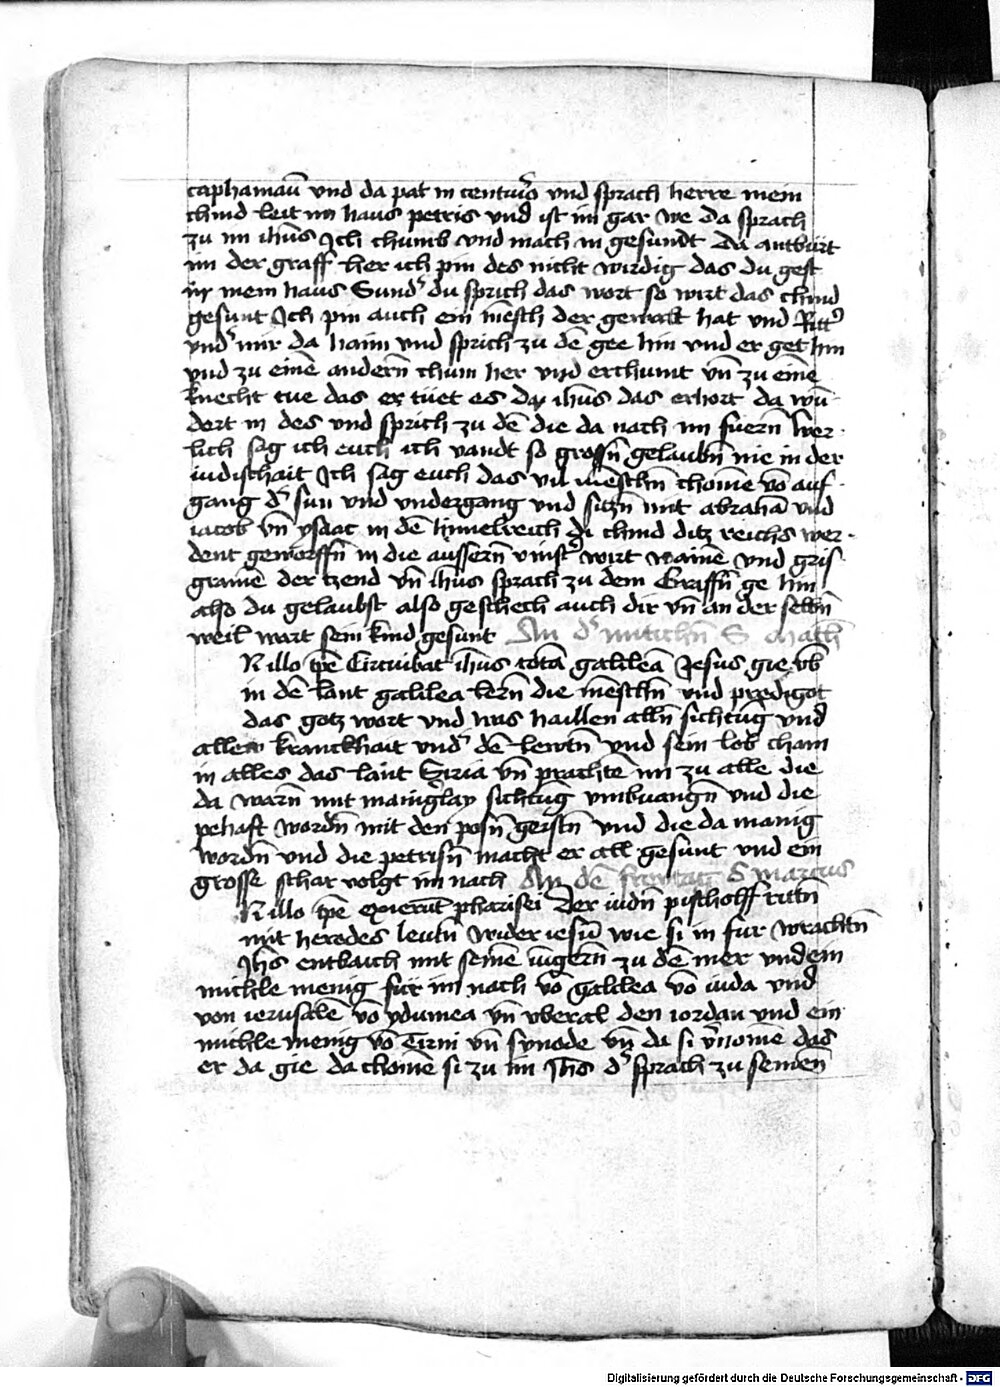 capharnau͞ vnd da pat in centurꝰ vnd sprach herre mein
chind leit im haus petris vnd ist im gar we da sprach
zu im ih͞us Jch chumb vnd mach in gesundt Da antbürt
im der graff her ich pin des nicht wirdig das du gest
in mein haus Sundꝰ du sprich das wort so wirt das chind
gesunt Jch pin auch ein me͞sch der gewalt hat vnd Rittꝰ
vndꝰ mir da haim vnd sprich zu de͞ gee hin vnd er get hin
vnd zu eine͞ andern͞ chum her vnd erchumt vn͞ zu eine͞
knecht tue das er tüet es da ih͞us das erhort da wu͞
dert in des vnd sprich zu de͞ die da nach im fuern͞ wer
lich sag ich euch ich vandt so grossn͞ gelaubn͞ nie in der
iudischait Jch sag euch das vil me͞schn͞ chome͞ vo͞ auf
gang dꝰ sun vnd vndergang vnd siczn͞ mit abraha͞ vnd
iacob vn͞ ysaac in de͞ himelreich di chind ditz reichs wer
dent geworffn͞ in die aussern͞ vinstꝰ wirt waine͞ vnd gris
grame͞ der tzend vn͞ ih͞us sprach zu dem Graffn͞ ge hin
also du gelaubst also geschech auch dir vn͞ an der selbn͞
weil wart sein kind gesunt An dꝰ mitichn͞ S Math͞
N illo tp͞e Circuibat ih͞us tota͞ galilea͞ Jesus gie vb͞
in de͞ lant galilea lern͞ die me͞schn͞ vnd predigot
das gotz wort vnd was hailen alln͞ sichtu͞g vnd
allew kranckhait vndꝰ de͞ lewtn͞ vnd sein lob cham
in alles das lant Siria vn͞ prachte͞ im zu alle die
da warn͞ mit manigꝰlay sichtu͞g vmbuangn͞ vnd die
pehaft wordn͞ mit den posn͞ geistn͞ vnd die da manig
wordn͞ vnd die petrisn͞ macht er all gesunt vnd ein
grosse schar volgt im nach An de͞ freytag S marcus
N illo tp͞e exieru͞t pharisei Der iudn͞ pischolff rittn͞
mit herodes leutn͞ wider iesu͞ wie si in fur prachtn͞
Jh͞s entbaich mit seine͞ iu͞gern͞ zu de͞ mer vnd ein
michle menig für im nach vo͞ galilea vo͞ iuda vnd
von ierusale͞ vo͞ ydumea vn͞ vberal den iordan vnd ein
michle menig vo͞ Tirni vn͞ synode vn͞ da si v͞nome͞ das
er da gie da chome͞ si zu im Jh͞s dꝰ sprach zu seinen͞